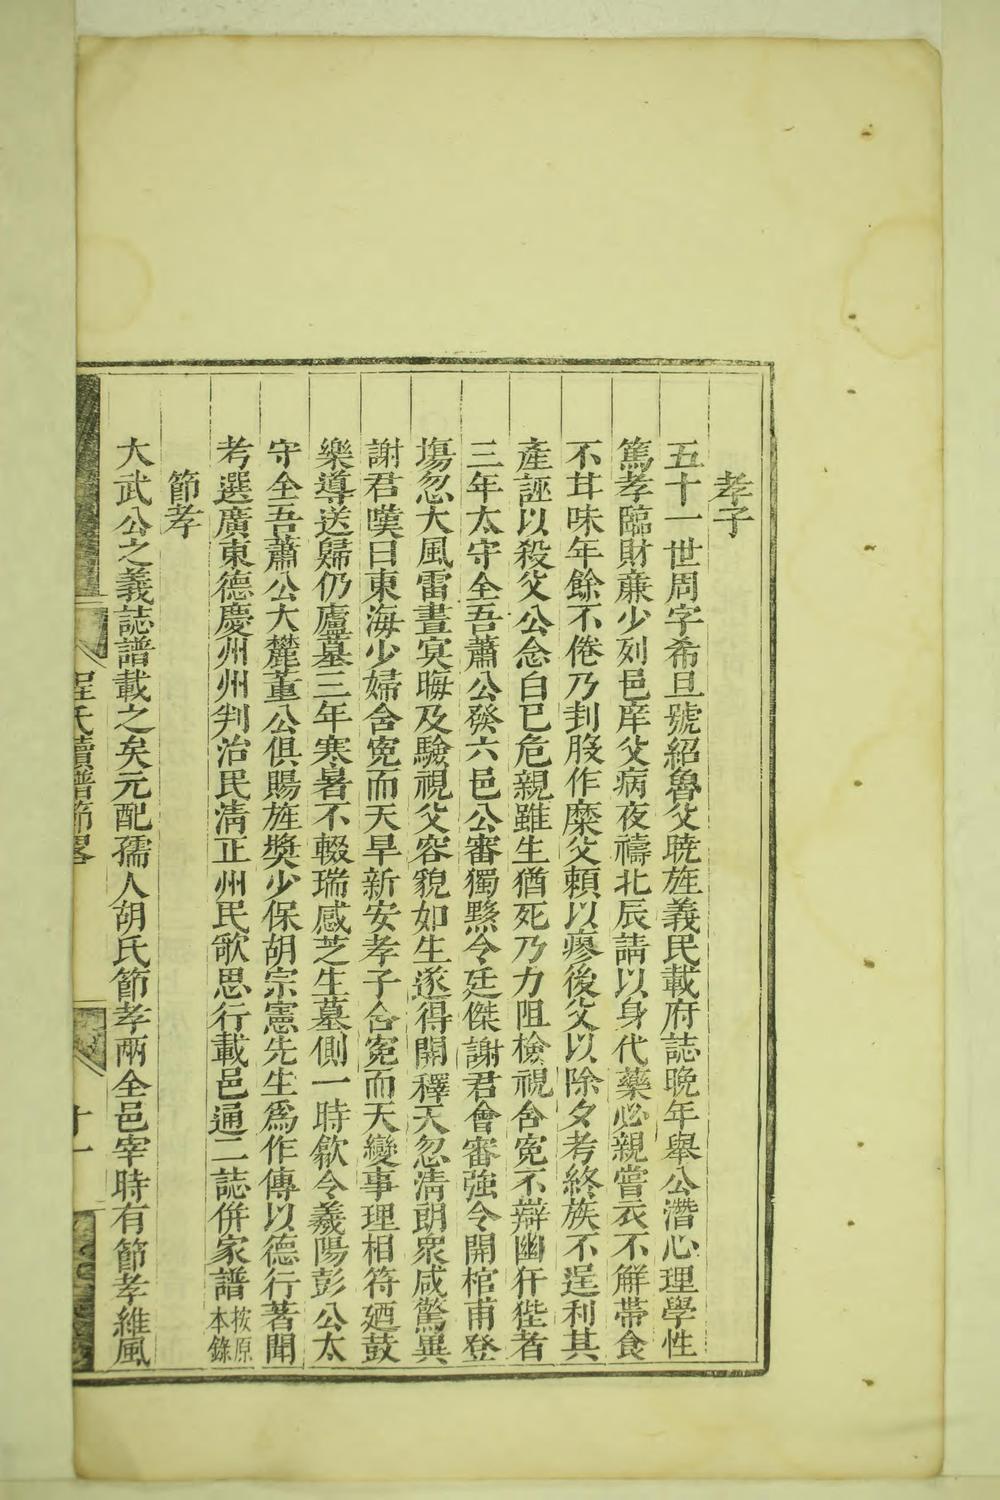 孝子
五十一世周字希旦號紹魯父曉旌義民載府誌晚年舉公潛心理學性
篤孝臨財亷少列邑庠父病夜禱北辰請以身代藥必親嘗衣不解帶食
不甘味年餘不倦乃刲股作糜父頼以瘳後父以除夕考終族不逞利其
產誣以殺父公念白已危親雖生猶死乃力阻檢視含寃不辯幽犴狴者
三年太守全吾蕭公發六邑公審獨黟令廷傑謝君會審強令開棺甫登
塲忽大風雷晝冥晦及驗視父容貌如生遂得開釋天忽淸朗衆咸驚異
謝君嘆曰東海少婦含寃而天旱新安孝子含寃而天變事理相符廼鼓
樂導送歸仍廬墓三年寒暑不輟瑞感芝生墓側一時歙令羲陽彭公太
守全吾蕭公大麓董公俱賜旌奬少保胡宗憲先生爲作傳以德行著聞
考選廣東德慶州州判治民淸正州民歌思行載邑通二誌併家譜按原本錄
節孝
大武公之義誌譜載之矣元配孺人胡氏節孝兩全邑宰時有節孝維風
程氏續譜節畧
十一